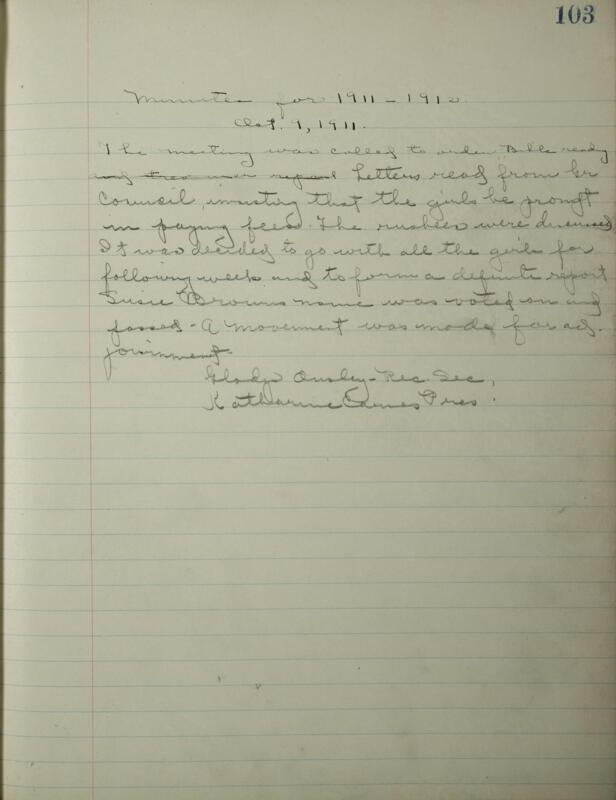 103
Minutes for 1911-1912
Oct. 9, 1911.
The meeting was called to order. Bible ready
and report Letters read from Gr
Council, insisting that the girls be prompt
in paying fees. The rushees were discussed
It was decided to go with all the girls for
following week and to form a definite report
Susie Browns name was voted on and
passed - A movement was made for ad-
journment.
Gladys Ousley - Rec. Sec.,
Katharine Carnes Pres.